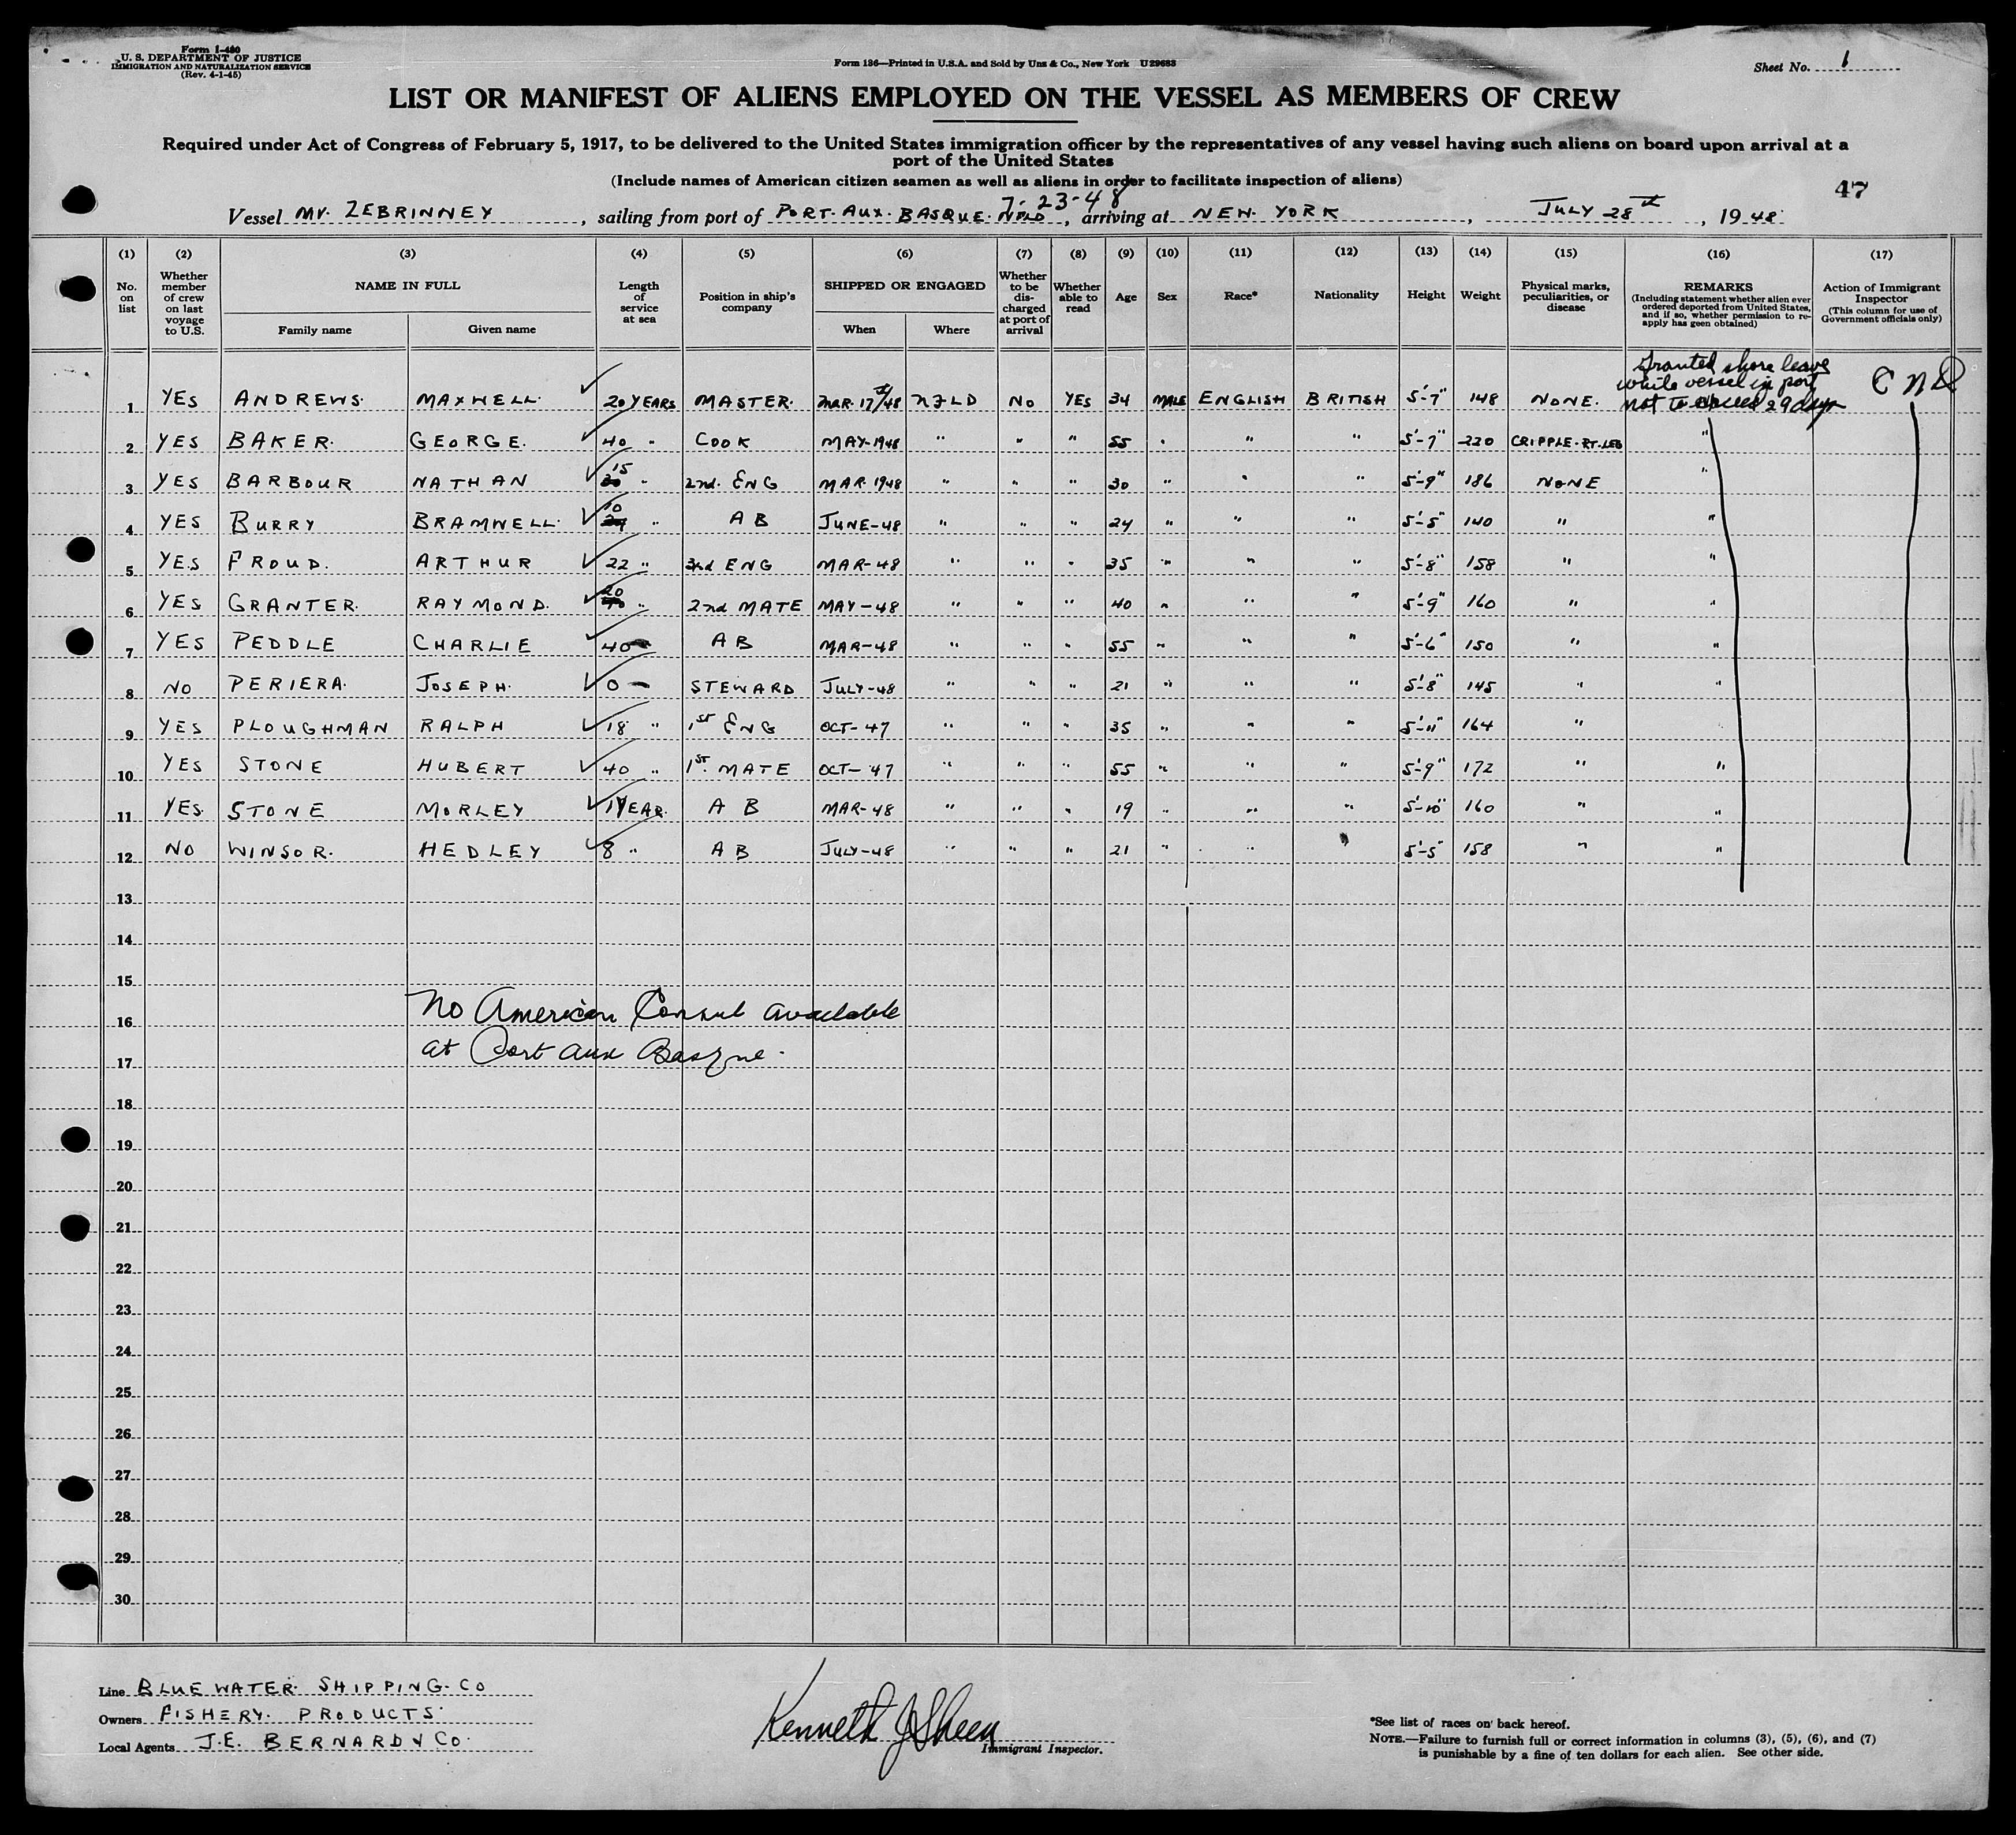 Form I-480
U. S. DEPARTMENT OF JUSTICE
IMMIGRATION AND NATURALIZATION SERVICE
(Rev. 4-1-45)
Form 136—Printed in U.S.A. and Sold by Unz & Co., New York U 29683
Sheet No. 1
LIST OR MANIFEST OF ALIENS EMPLOYED ON THE VESSEL AS MEMBERS OF CREW
Required under Act of Congress of February 5, 1917, to be delivered to the United States immigration officer by the representatives of any vessel having such aliens on board upon arrival at a
port of the United States
(Include names of American citizen seamen as well as aliens in order to facilitate inspection of aliens)
47
7-23-48
Vessel MV. ZEBRINNEY, sailing from port of PORT. AUX. BASQUE. NFLD, arriving at NEW. YORK, JULY 28th, 1948
(1) (2) (3) (4) (5) (6) (7) (8) (9) (10) (11) (12) (13) (14) (15) (16) (17)
No. on list
Whether member of crew on last voyage to U.S.
NAME IN FULL
Family name
Given name
Length of service at sea
Position in ship's company
SHIPPED OR ENGAGED
When
Where
Whether to be discharged at port of arrival
Whether able to read
Age
Sex
Race*
Nationality
Height
Weight
Physical marks, peculiarities, or disease
REMARKS
(Including statement whether alien ever ordered deported from United States, and if so, whether permission to reapply has geen obtained)
Action of Immigrant Inspector
(This column for use of Government officials only)
Granted shore leave
while vessel in port
not to exceed 29 days
1 YES ANDREWS. MAXWELL. 20 YEARS MASTER. MAR. 17th/48 NFLD NO YES 34 MALE ENGLISH BRITISH 5'-7" 148 NONE.
2 YES BAKER. GEORGE. 40 " COOK MAY-1948 " " " 55 " " " 5'-7" 220 CRIPPLE-RT.LEG "
3 YES BARBOUR NATHAN 15 " 2nd. ENG MAR 1948 " " " 30 " " " 5'-9" 186 NONE "
4 YES BURRY BRAMWELL. 10 " AB JUNE-48 " " " 24 " " " 5'-5" 140 " "
5 YES FROUD. ARTHUR 22 " 3rd ENG MAR-48 " " " 35 " " " 5'-8" 158 " "
6 YES GRANTER. RAYMOND. 20 " 2nd MATE MAY-48 " " " 40 " " " 5'-9" 160 " "
7 YES PEDDLE CHARLIE 40 AB MAR-48 " " " 55 " " " 5'-6" 150 " "
8 NO PERIERA. JOSEPH. 0 — STEWARD JULY-48 " " " 21 " " " 5'-8" 145 " "
9 YES PLOUGHMAN RALPH 18 " 1st ENG OCT-47 " " " 35 " " " 5'-11" 164 "
10 YES STONE HUBERT 40 " 1ST. MATE OCT-47 " " " 55 " " " 5'-9" 172 " "
11 YES. STONE MORLEY 1 YEAR. AB MAR-48 " " " 19 " " " 5'-10" 160 " "
12 NO WINSOR. HEDLEY 8 " AB JULY-48 " " " 21 " " " 5'-5" 158 " "
13
14
15
16
17
No American Consul available
at Port aux Basque.
18
19
20
21
22
23
24
25
26
27
28
29
30
Line BLUE WATER. SHIPPING. CO
Owners FISHERY. PRODUCTS.
Local Agents J.E. BERNARD & CO.
Kenneth J Sheen
Immigrant Inspector.
*See list of races on back hereof.
NOTE.—Failure to furnish full or correct information in columns (3), (5), (6), and (7)
is punishable by a fine of ten dollars for each alien. See other side.